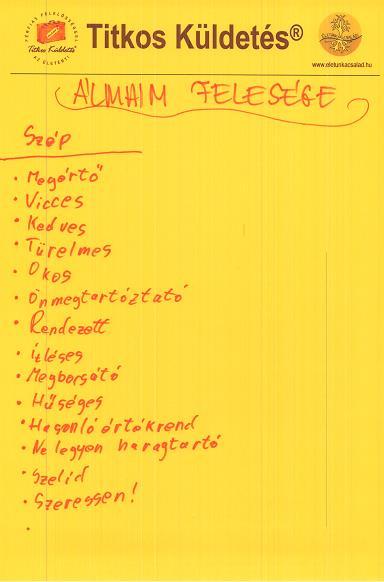 PÉNZÜGYI FELELŐSSÉGGEL
Titkos Küldetés
AZ ÉLETÉRT!
Titkos Küldetés®
www.eletunkacsalad.hu
ÁLMAIM FELESÉGE
Szép
• Megértő
• Vicces
• Kedves
• Türelmes
• Okos
• Önmegtartóztató
• Rendezett
• ízléses
• Megborsátó
• Hűséges
• Hasonló értékrend
• Ne legyen haragtartó
• Szelíd
• Szeressen!
•